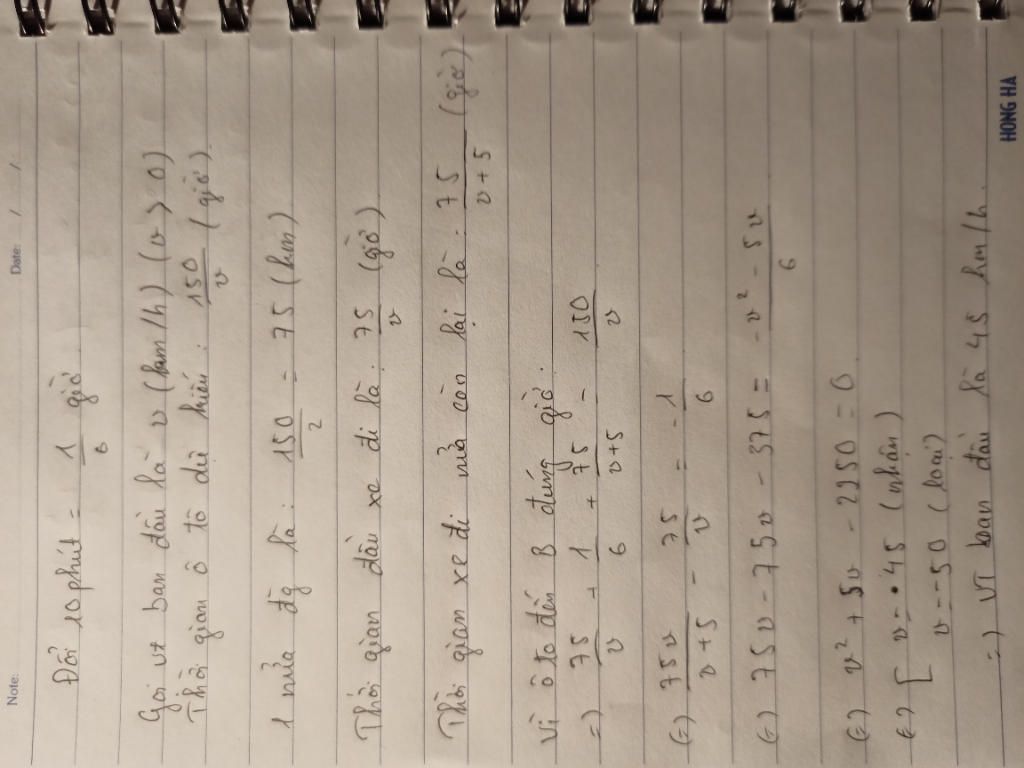 Note:
Date: / /
Đổi 10 phút = 1/6 giờ
Gọi vt ban đầu là v (km/h) (v > 0)
Thời gian ô tô dự kiến : 150/v (giờ)
1 nửa đg là : 150/2 = 75 (km)
Thời gian đầu xe đi là : 75/v (giờ)
Thời gian xe đi nửa còn lại là : 75/(v + 5) (giờ)
Vì ô tô đến B đúng giờ.
=) 75/v + 1/6 + 75/(v+5) = 150/v
(=) 75v/(v+5) - 75/v = -1/6
(=) 75v - 75v - 375 = (-v² - 5v)/6
(=) v² + 5v - 2250 = 0
(=) [ v = 45 (nhận)
v = -50 (loại)
=) VT ban đầu là 45 km/h.
HONG HA